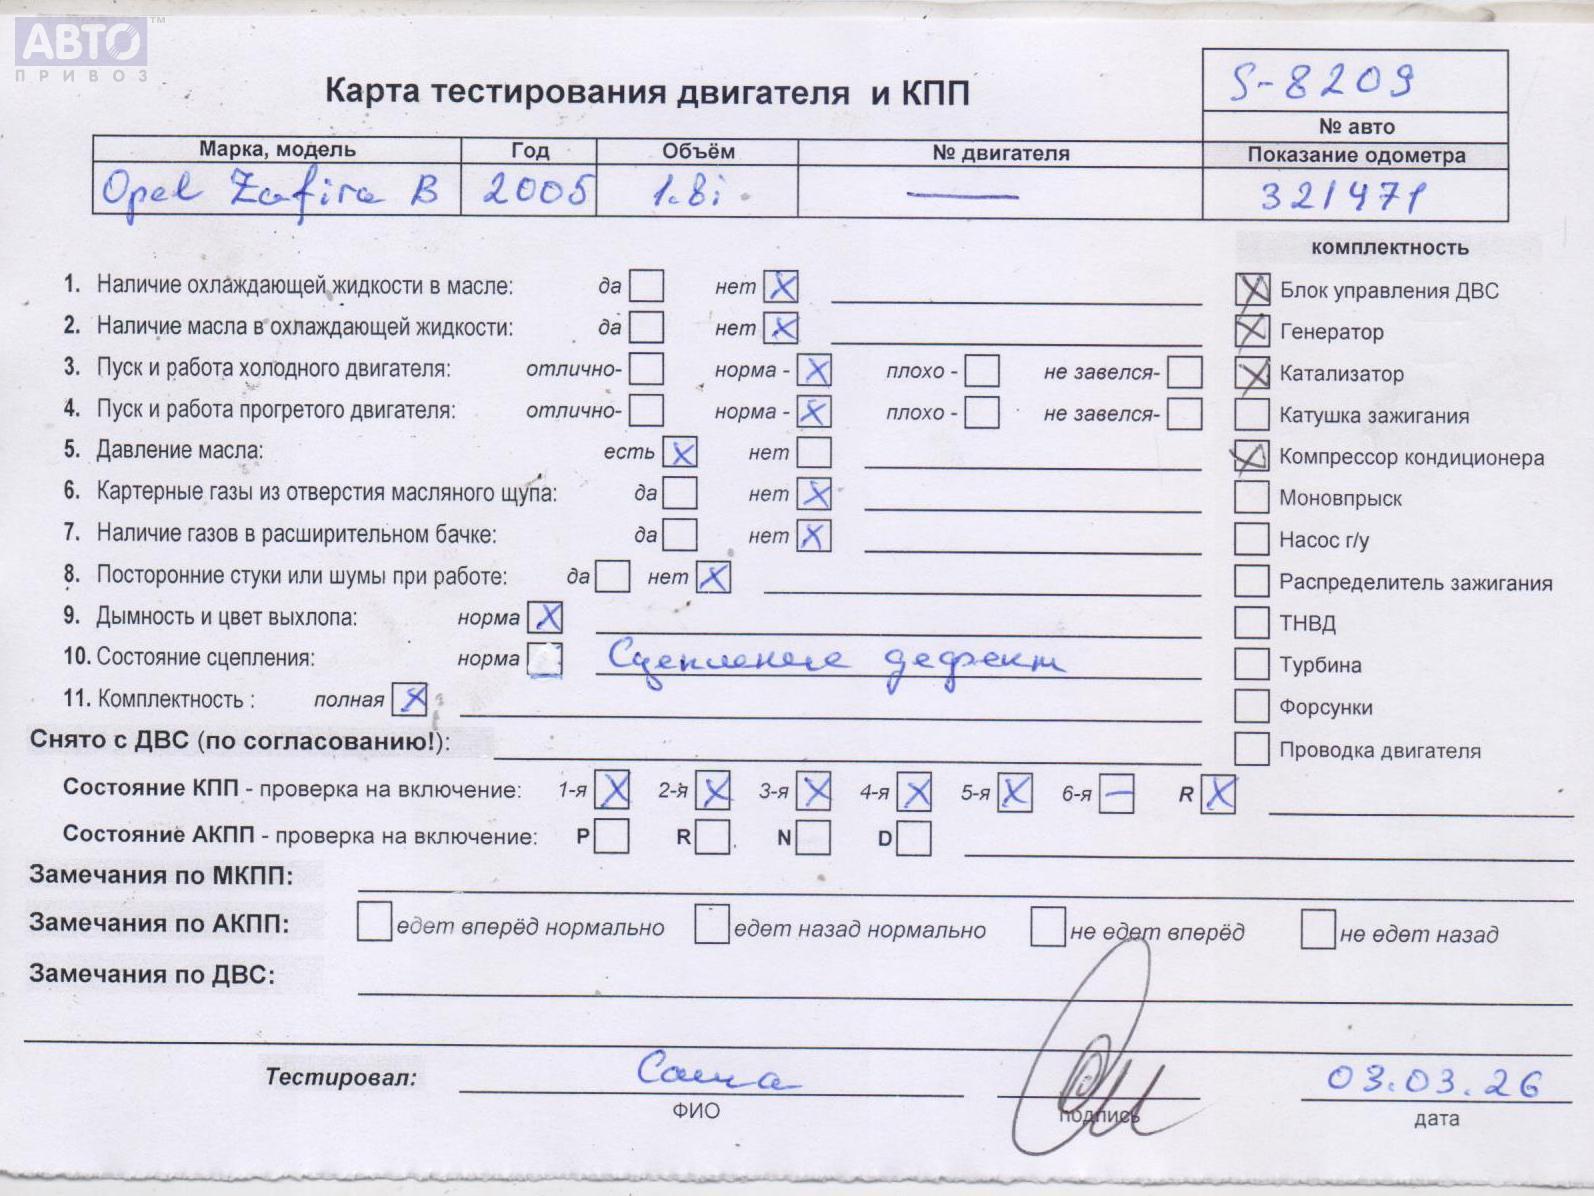 АВТО™
ПРИВОЗ
S-8209
Карта тестирования двигателя и КПП
№ авто
Марка, модель Год Объём № двигателя Показание одометра
Opel Zafira B 2005 1.8i — 321471
комплектность
1. Наличие охлаждающей жидкости в масле: да нет X
Блок управления ДВС
2. Наличие масла в охлаждающей жидкости: да нет X
Генератор
3. Пуск и работа холодного двигателя: отлично- норма - X плохо - не завелся-
Катализатор
4. Пуск и работа прогретого двигателя: отлично- норма - X плохо - не завелся-
Катушка зажигания
5. Давление масла: есть X нет
Компрессор кондиционера
6. Картерные газы из отверстия масляного щупа: да нет X
Моновпрыск
7. Наличие газов в расширительном бачке: да нет X
Насос г/у
8. Посторонние стуки или шумы при работе: да нет X
Распределитель зажигания
9. Дымность и цвет выхлопа: норма X
ТНВД
10. Состояние сцепления: норма Сцепление дефект
Турбина
11. Комплектность : полная X
Форсунки
Снято с ДВС (по согласованию!):
Проводка двигателя
Состояние КПП - проверка на включение: 1-я X 2-я X 3-я X 4-я X 5-я X 6-я — R X
Состояние АКПП - проверка на включение: P R N D
Замечания по МКПП:
Замечания по АКПП: едет вперёд нормально едет назад нормально не едет вперёд не едет назад
Замечания по ДВС:
Тестировал: Саша 03.03.26
ФИО подпись дата